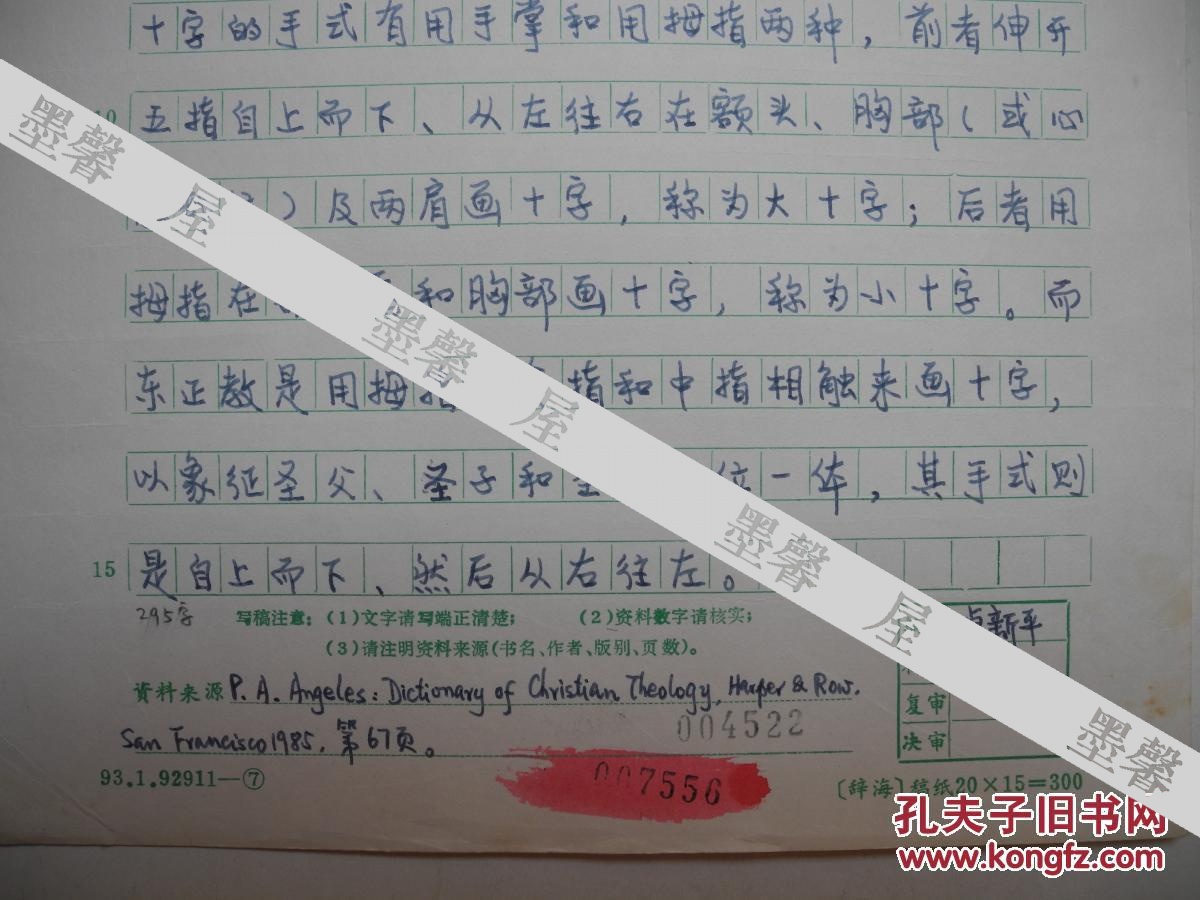 十字的手式有用手掌和用拇指两种，前者伸开
10 五指自上而下、从左往右在额头、胸部（或心
）及两肩画十字，称为大十字；后者用
拇指在 和胸部画十字，称为小十字。而
东正教是用拇指 指和中指相触来画十字，
以象征圣父、圣子和圣 位一体，其手式则
15 是自上而下、然后从右往左。
295字 写稿注意：(1)文字请写端正清楚； (2)资料数字请核实；
(3)请注明资料来源(书名、作者、版别、页数)。
卓新平
资料来源 P. A. Angeles: Dictionary of Christian Theology, Harper & Row.
San Francisco 1985, 第67页。
004522
复审
决审
93.1.92911—⑦
007556
〔辞海〕稿纸20×15=300
墨馨屋 墨馨屋 墨馨屋 墨馨
孔夫子旧书网
www.kongfz.com